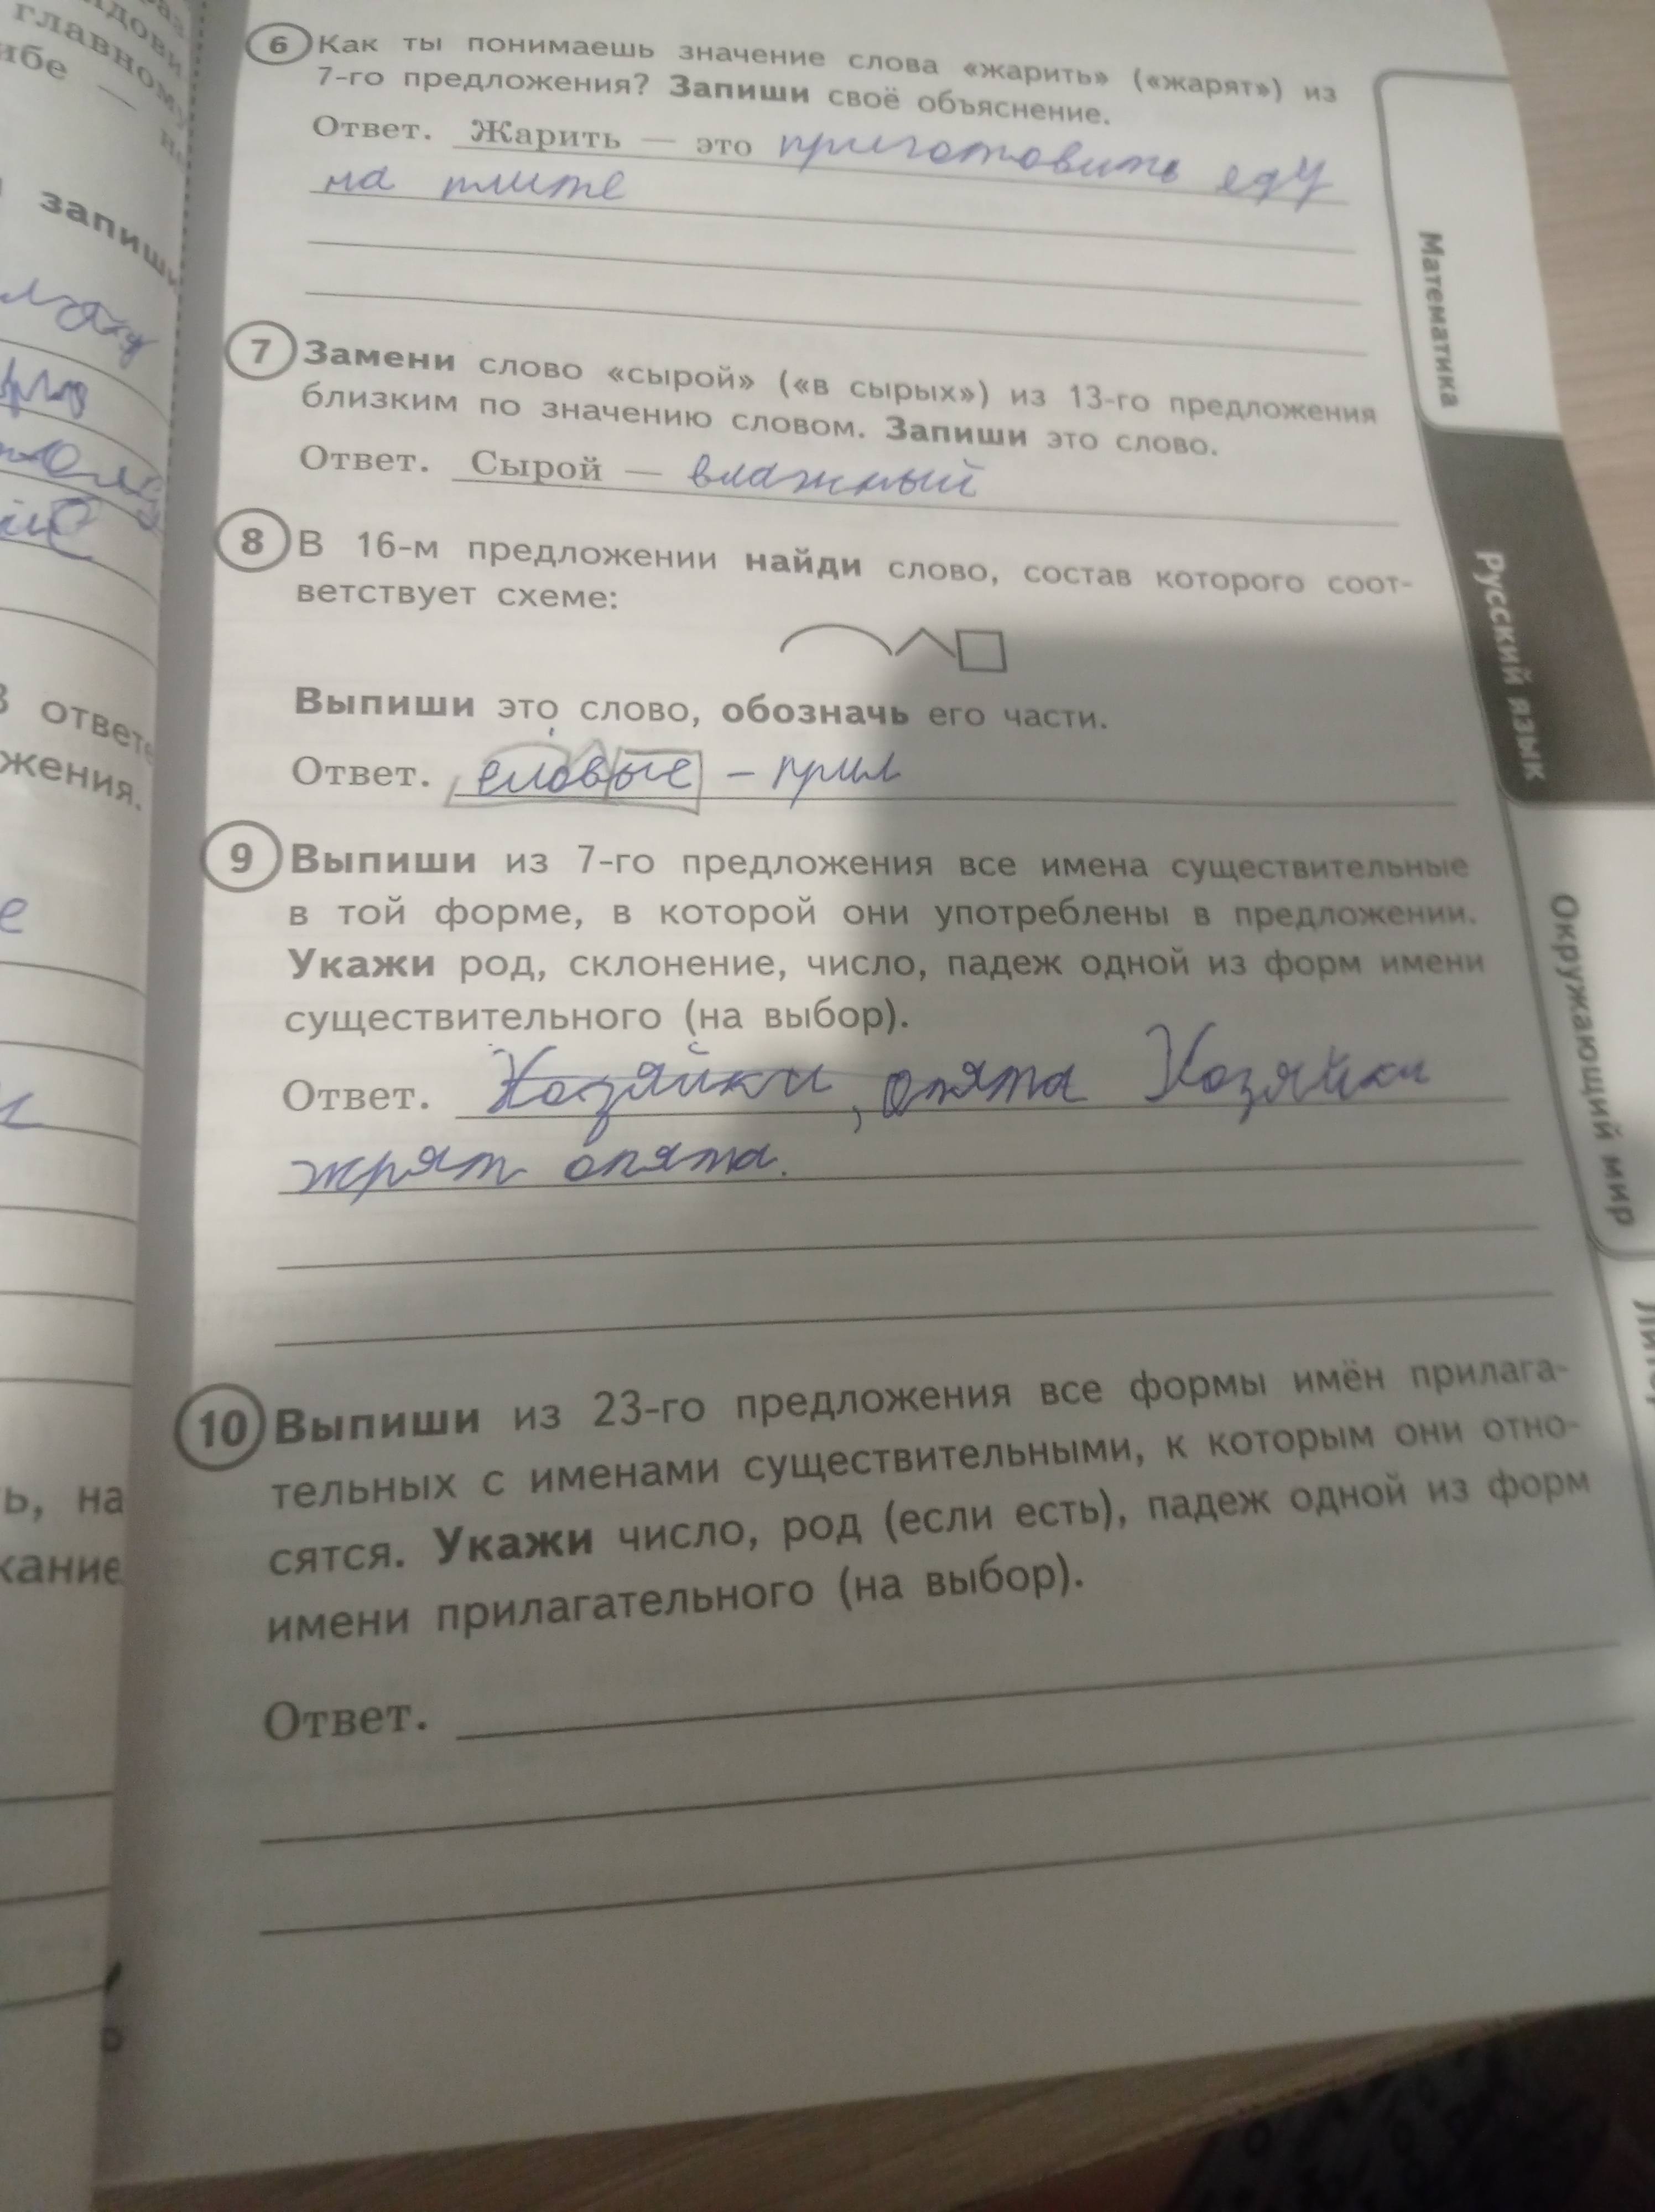 главному
ибе —
запиши
В ответе
жения.
ь, на
жание
6 Как ты понимаешь значение слова «жарить» («жарят») из
7-го предложения? Запиши своё объяснение.
Ответ. Жарить — это приготовить еду
на плите
7 Замени слово «сырой» («в сырых») из 13-го предложения
близким по значению словом. Запиши это слово.
Ответ. Сырой — влажный
8 В 16-м предложении найди слово, состав которого соот-
ветствует схеме:
Выпиши это слово, обозначь его части.
Ответ. еловые – прил
9 Выпиши из 7-го предложения все имена существительные
в той форме, в которой они употреблены в предложении.
Укажи род, склонение, число, падеж одной из форм имени
существительного (на выбор).
Ответ. Хозяйки, опята Хозяйки
жрят опята.
10 Выпиши из 23-го предложения все формы имён прилага-
тельных с именами существительными, к которым они отно-
сятся. Укажи число, род (если есть), падеж одной из форм
имени прилагательного (на выбор).
Ответ.
Математика
Русский язык
Окружающий мир